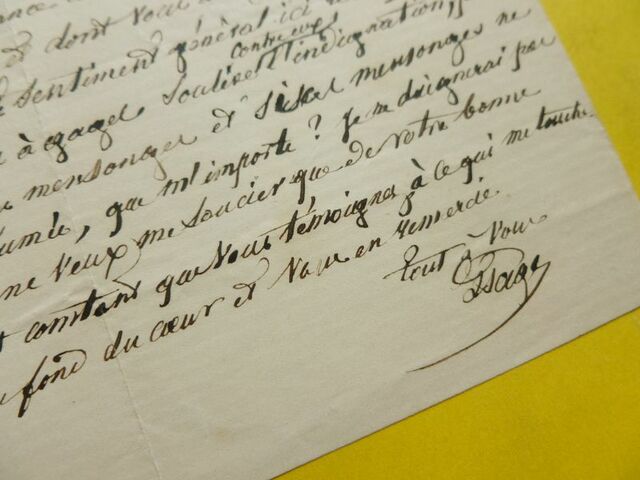 et dont vous
sentiment général ici
contre eux
à gager, soulèvent l'indignation,
mensonges et mensonges ne
que m'importe? Je ne daignerai pas
ne veux me soucier que de votre bonne
constant que vous témoignez à ce qui me touche.
fond du cœur et vous en remercie.
tout à vous